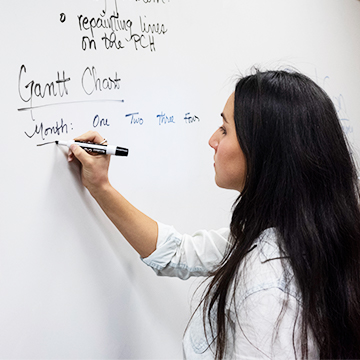 • repainting lines
on the PCH
Gantt Chart
Month: One Two Three Four